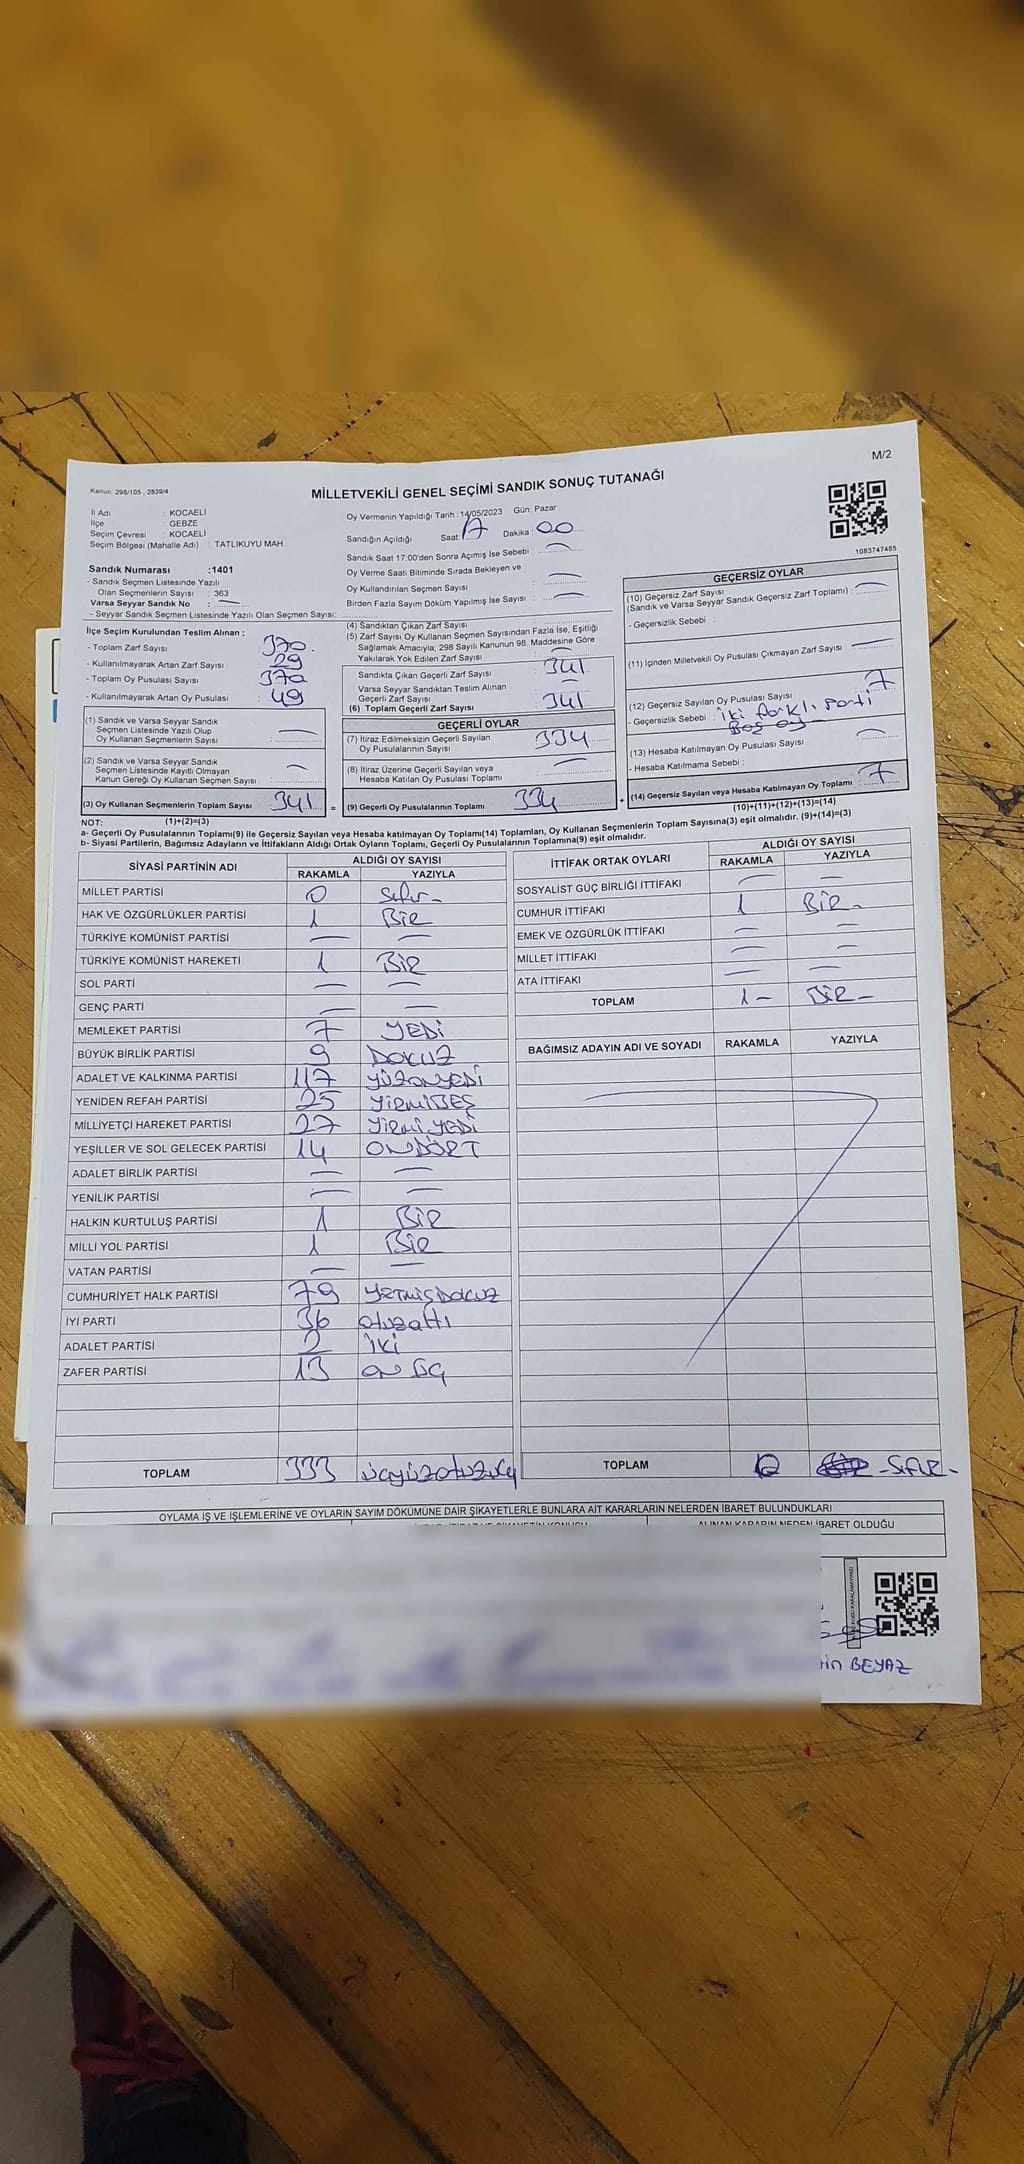 M/2
Kanun: 298/105 , 2839/4
MİLLETVEKİLİ GENEL SEÇİMİ SANDIK SONUÇ TUTANAĞI
İl Adı : KOCAELİ
İlçe : GEBZE
Seçim Çevresi : KOCAELİ
Seçim Bölgesi (Mahalle Adı) : TATLIKUYU MAH.
Oy Vermenin Yapıldığı Tarih :14/05/2023 Gün: Pazar
Sandığın Açıldığı Saat: 17 Dakika : 00
Sandık Saat 17:00'den Sonra Açımış İse Sebebi : —
Oy Verme Saati Bitiminde Sırada Bekleyen ve
Oy Kullandırılan Seçmen Sayısı : —
Birden Fazla Sayım Döküm Yapılmış İse Sayısı : —
1083747485
Sandık Numarası :1401
- Sandık Seçmen Listesinde Yazılı
Olan Seçmenlerin Sayısı : 363
Varsa Seyyar Sandık No : —
- Seyyar Sandık Seçmen Listesinde Yazılı Olan Seçmen Sayısı:
İlçe Seçim Kurulundan Teslim Alınan ;
- Toplam Zarf Sayısı : 370
- Kullanılmayarak Artan Zarf Sayısı : 29
- Toplam Oy Pusulası Sayısı : 370
- Kullanılmayarak Artan Oy Pusulası : 49
(1) Sandık ve Varsa Seyyar Sandık
Seçmen Listesinde Yazılı Olup
Oy Kullanan Seçmenlerin Sayısı : —
(2) Sandık ve Varsa Seyyar Sandık
Seçmen Listesinde Kayıtlı Olmayan
Kanun Gereği Oy Kullanan Seçmen Sayısı : —
(3) Oy Kullanan Seçmenlerin Toplam Sayısı : 341 =
(1)+(2)=(3)
(4) Sandıktan Çıkan Zarf Sayısı
(5) Zarf Sayısı Oy Kullanan Seçmen Sayısından Fazla İse, Eşitliği
Sağlamak Amacıyla; 298 Sayılı Kanunun 98. Maddesine Göre
Yakılarak Yok Edilen Zarf Sayısı : —
Sandıkta Çıkan Geçerli Zarf Sayısı : 341
Varsa Seyyar Sandıktan Teslim Alınan
Geçerli Zarf Sayısı : —
(6) Toplam Geçerli Zarf Sayısı : 341
GEÇERLİ OYLAR
(7) İtiraz Edilmeksizin Geçerli Sayılan
Oy Pusulalarının Sayısı : 334
(8) İtiraz Üzerine Geçerli Sayılan veya
Hesaba Katılan Oy Pusulası Toplamı : —
(9) Geçerli Oy Pusulalarının Toplamı 334 +
GEÇERSİZ OYLAR
(10) Geçersiz Zarf Sayısı
(Sandık ve Varsa Seyyar Sandık Geçersiz Zarf Toplamı) : —
- Geçersizlik Sebebi :
(11) İçinden Milletvekili Oy Pusulası Çıkmayan Zarf Sayısı —
(12) Geçersiz Sayılan Oy Pusulası Sayısı : 7
- Geçersizlik Sebebi : iki farklı parti
Boş oy
(13) Hesaba Katılmayan Oy Pusulası Sayısı : —
- Hesaba Katılmama Sebebi :
(14) Geçersiz Sayılan veya Hesaba Katılmayan Oy Toplamı : 7
(10)+(11)+(12)+(13)=(14)
NOT:
a- Geçerli Oy Pusulalarının Toplamı(9) ile Geçersiz Sayılan veya Hesaba katılmayan Oy Toplamı(14) Toplamları, Oy Kullanan Seçmenlerin Toplam Sayısına(3) eşit olmalıdır. (9)+(14)=(3)
b- Siyasi Partilerin, Bağımsız Adayların ve İttifakların Aldığı Ortak Oyların Toplamı, Geçerli Oy Pusulalarının Toplamına(9) eşit olmalıdır.
SİYASİ PARTİNİN ADI ALDIĞI OY SAYISI
RAKAMLA YAZIYLA
MİLLET PARTİSİ 0 sıfır-
HAK VE ÖZGÜRLÜKLER PARTİSİ 1 BİR
TÜRKİYE KOMÜNİST PARTİSİ — —
TÜRKİYE KOMÜNİST HAREKETİ 1 BİR
SOL PARTİ — —
GENÇ PARTİ — —
MEMLEKET PARTİSİ 7 YEDİ
BÜYÜK BİRLİK PARTİSİ 9 DOKUZ
ADALET VE KALKINMA PARTİSİ 117 YÜZONYEDİ
YENİDEN REFAH PARTİSİ 25 YİRMİBEŞ
MİLLİYETÇİ HAREKET PARTİSİ 27 YİRMİ YEDİ
YEŞİLLER VE SOL GELECEK PARTİSİ 14 ONDÖRT
ADALET BİRLİK PARTİSİ — —
YENİLİK PARTİSİ — —
HALKIN KURTULUŞ PARTİSİ 1 BİR
MİLLİ YOL PARTİSİ 1 BİR
VATAN PARTİSİ — —
CUMHURİYET HALK PARTİSİ 79 YETMİŞDOKUZ
İYİ PARTİ 36 otuzaltı
ADALET PARTİSİ 2 İKİ
ZAFER PARTİSİ 13 ON ÜÇ
TOPLAM 333 üçyüzotuzüç
İTTİFAK ORTAK OYLARI ALDIĞI OY SAYISI
RAKAMLA YAZIYLA
SOSYALİST GÜÇ BİRLİĞİ İTTİFAKI — —
CUMHUR İTTİFAKI 1 BİR-
EMEK VE ÖZGÜRLÜK İTTİFAKI — —
MİLLET İTTİFAKI — —
ATA İTTİFAKI — —
TOPLAM 1- BİR-
BAĞIMSIZ ADAYIN ADI VE SOYADI RAKAMLA YAZIYLA
TOPLAM 0 -SIFIR-
OYLAMA İŞ VE İŞLEMLERİNE VE OYLARIN SAYIM DÖKÜMÜNE DAİR ŞİKAYETLERLE BUNLARA AİT KARARLARIN NELERDEN İBARET BULUNDUKLARI
ALINAN KARARIN NEDEN İBARET OLDUĞU
BEYAZ